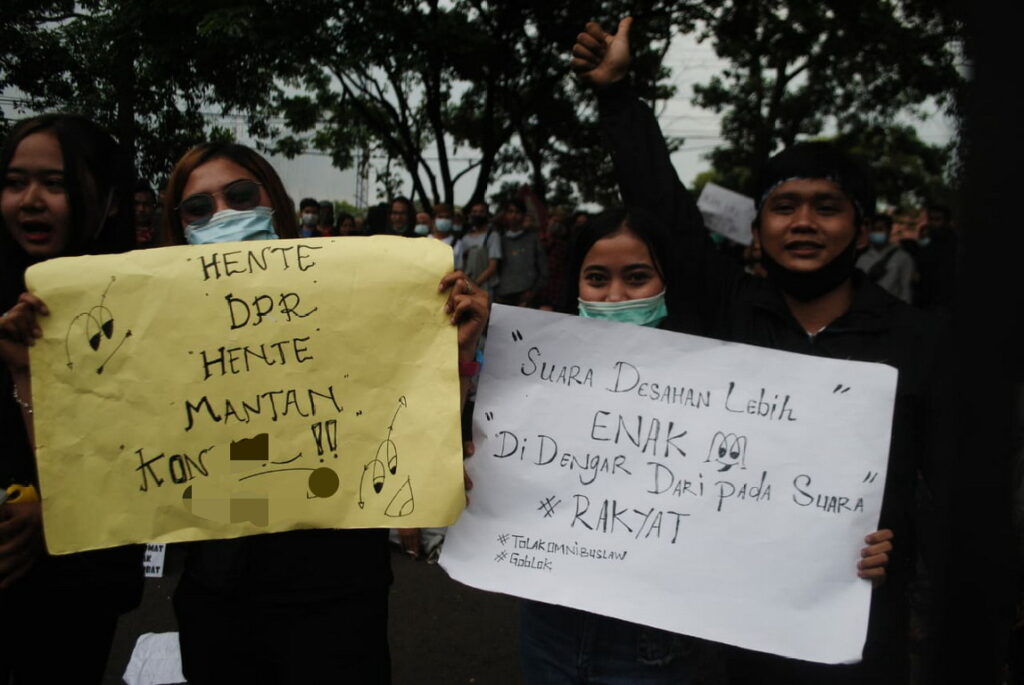 HENTE
DPR
HENTE
MANTAN
KON !!
"SUARA DESAHAN LEBIH "
ENAK
"DI DENGAR DARI PADA SUARA"
# RAKYAT
#TOLAKOMNIBUSLAW
#GOBLOK